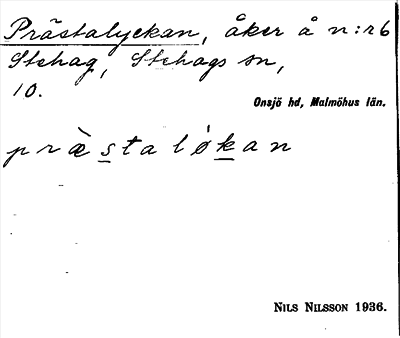 Prästalyckan, åker å n:r 6
Stehag, Stehags sn,
10.
Onsjö hd, Malmöhus län.
præ̀staló̀kan
NILS NILSSON 1936.